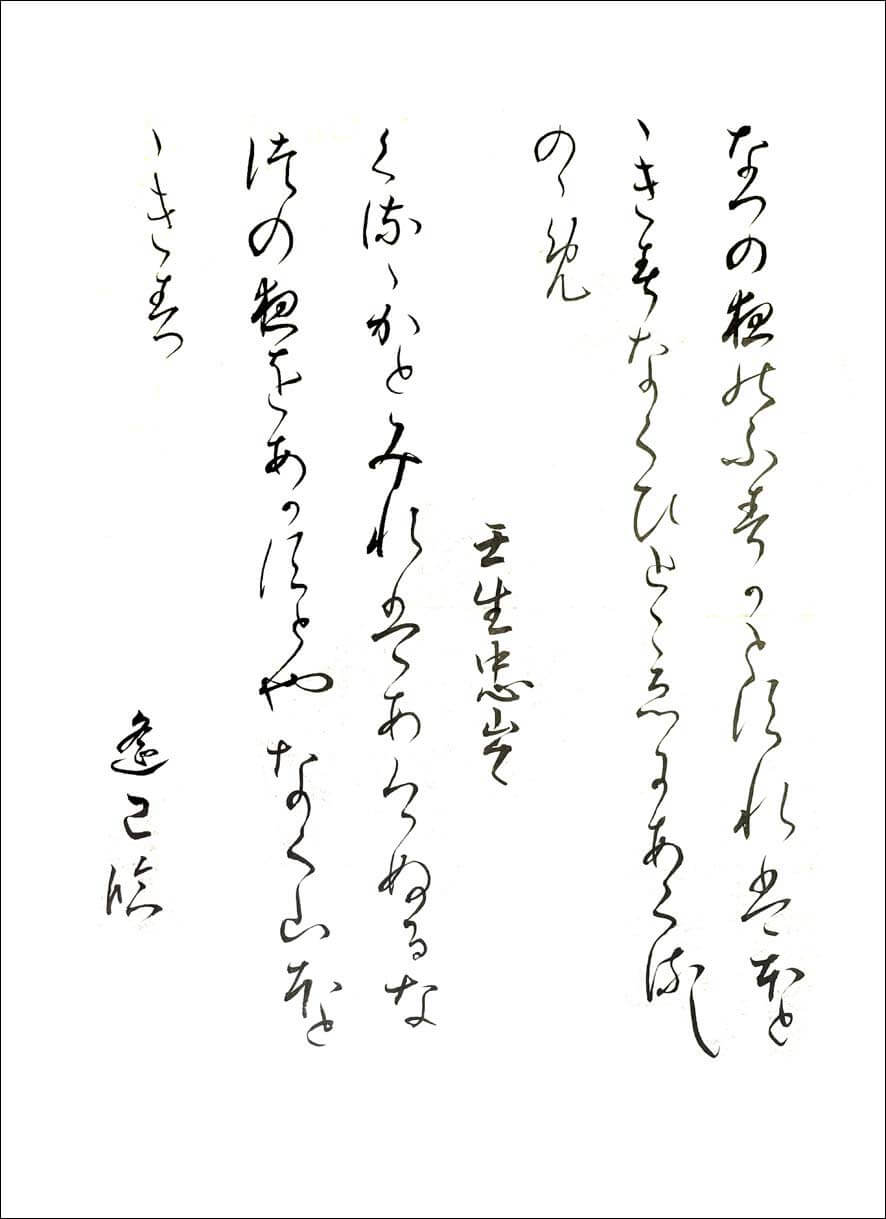 なつの夜のふすかとすれはほと
ゝきすなくひとこゑにあくるし
のゝめ
壬生忠岑
くるゝかとみれはあけぬるな
つの夜をあかすとやなく山ほと
ゝきす
臨